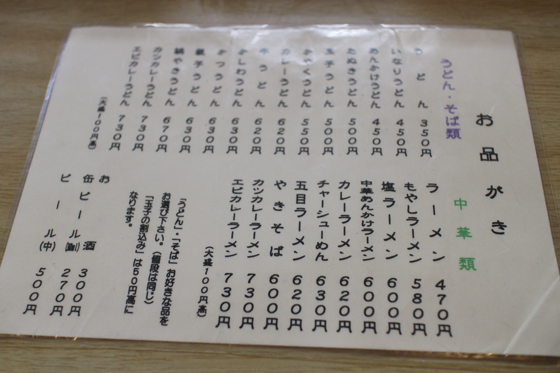 お品がき
うどん・そば類
うどん 350円
いなりうどん 450円
あんかけうどん 450円
たぬきうどん 500円
玉子うどん 500円
かやくうどん 550円
カレーうどん 620円
牛うどん 620円
かしわうどん 630円
かつうどん 630円
親子うどん 630円
鍋やきうどん 670円
カツカレーうどん 730円
エビカレーうどん 730円
(大盛100円高)
中華類
ラーメン 470円
もやしラーメン 580円
塩ラーメン 600円
中華あんかけラーメン 600円
カレーラーメン 620円
チャーシューめん 630円
五目ラーメン 620円
やきそば 600円
カツカレーラーメン 730円
エビカレーラーメン 730円
(大盛100円高)
「うどん」・「そば」お好きな品を
お選び下さい。(値段は同じ)
「玉子の割込み」は50円高に
なります。
お酒 300円
缶ビール(3㎗) 270円
ビール(中) 500円